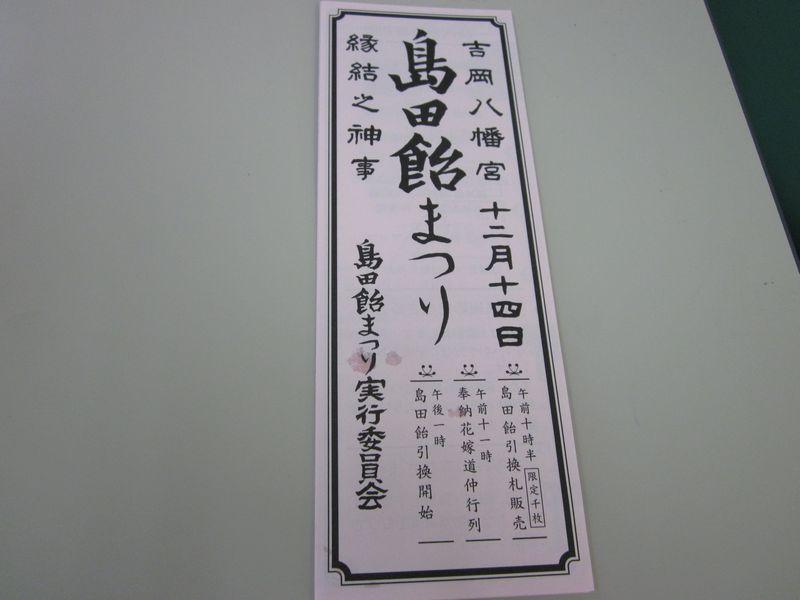 吉岡八幡宮 十二月十四日
島田飴まつり
縁結之神事
午前十時半
島田飴引換札販売
限定千枚
午前十一時
奉納花嫁道仲行列
午後一時
島田飴引換開始
島田飴まつり実行委員会